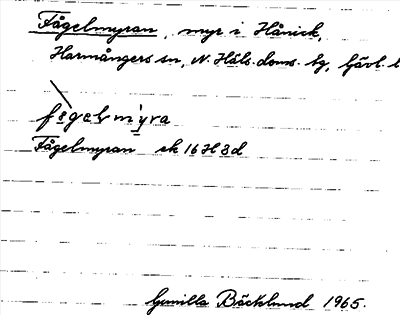 Fågelmyran, myr i Hånick,
Harmångers sn, N. Häls. doms. tg, Gävl. l
fågelmyra
Fågelmyran ek 16 H 3 d
Gunilla Bäcklund 1965.